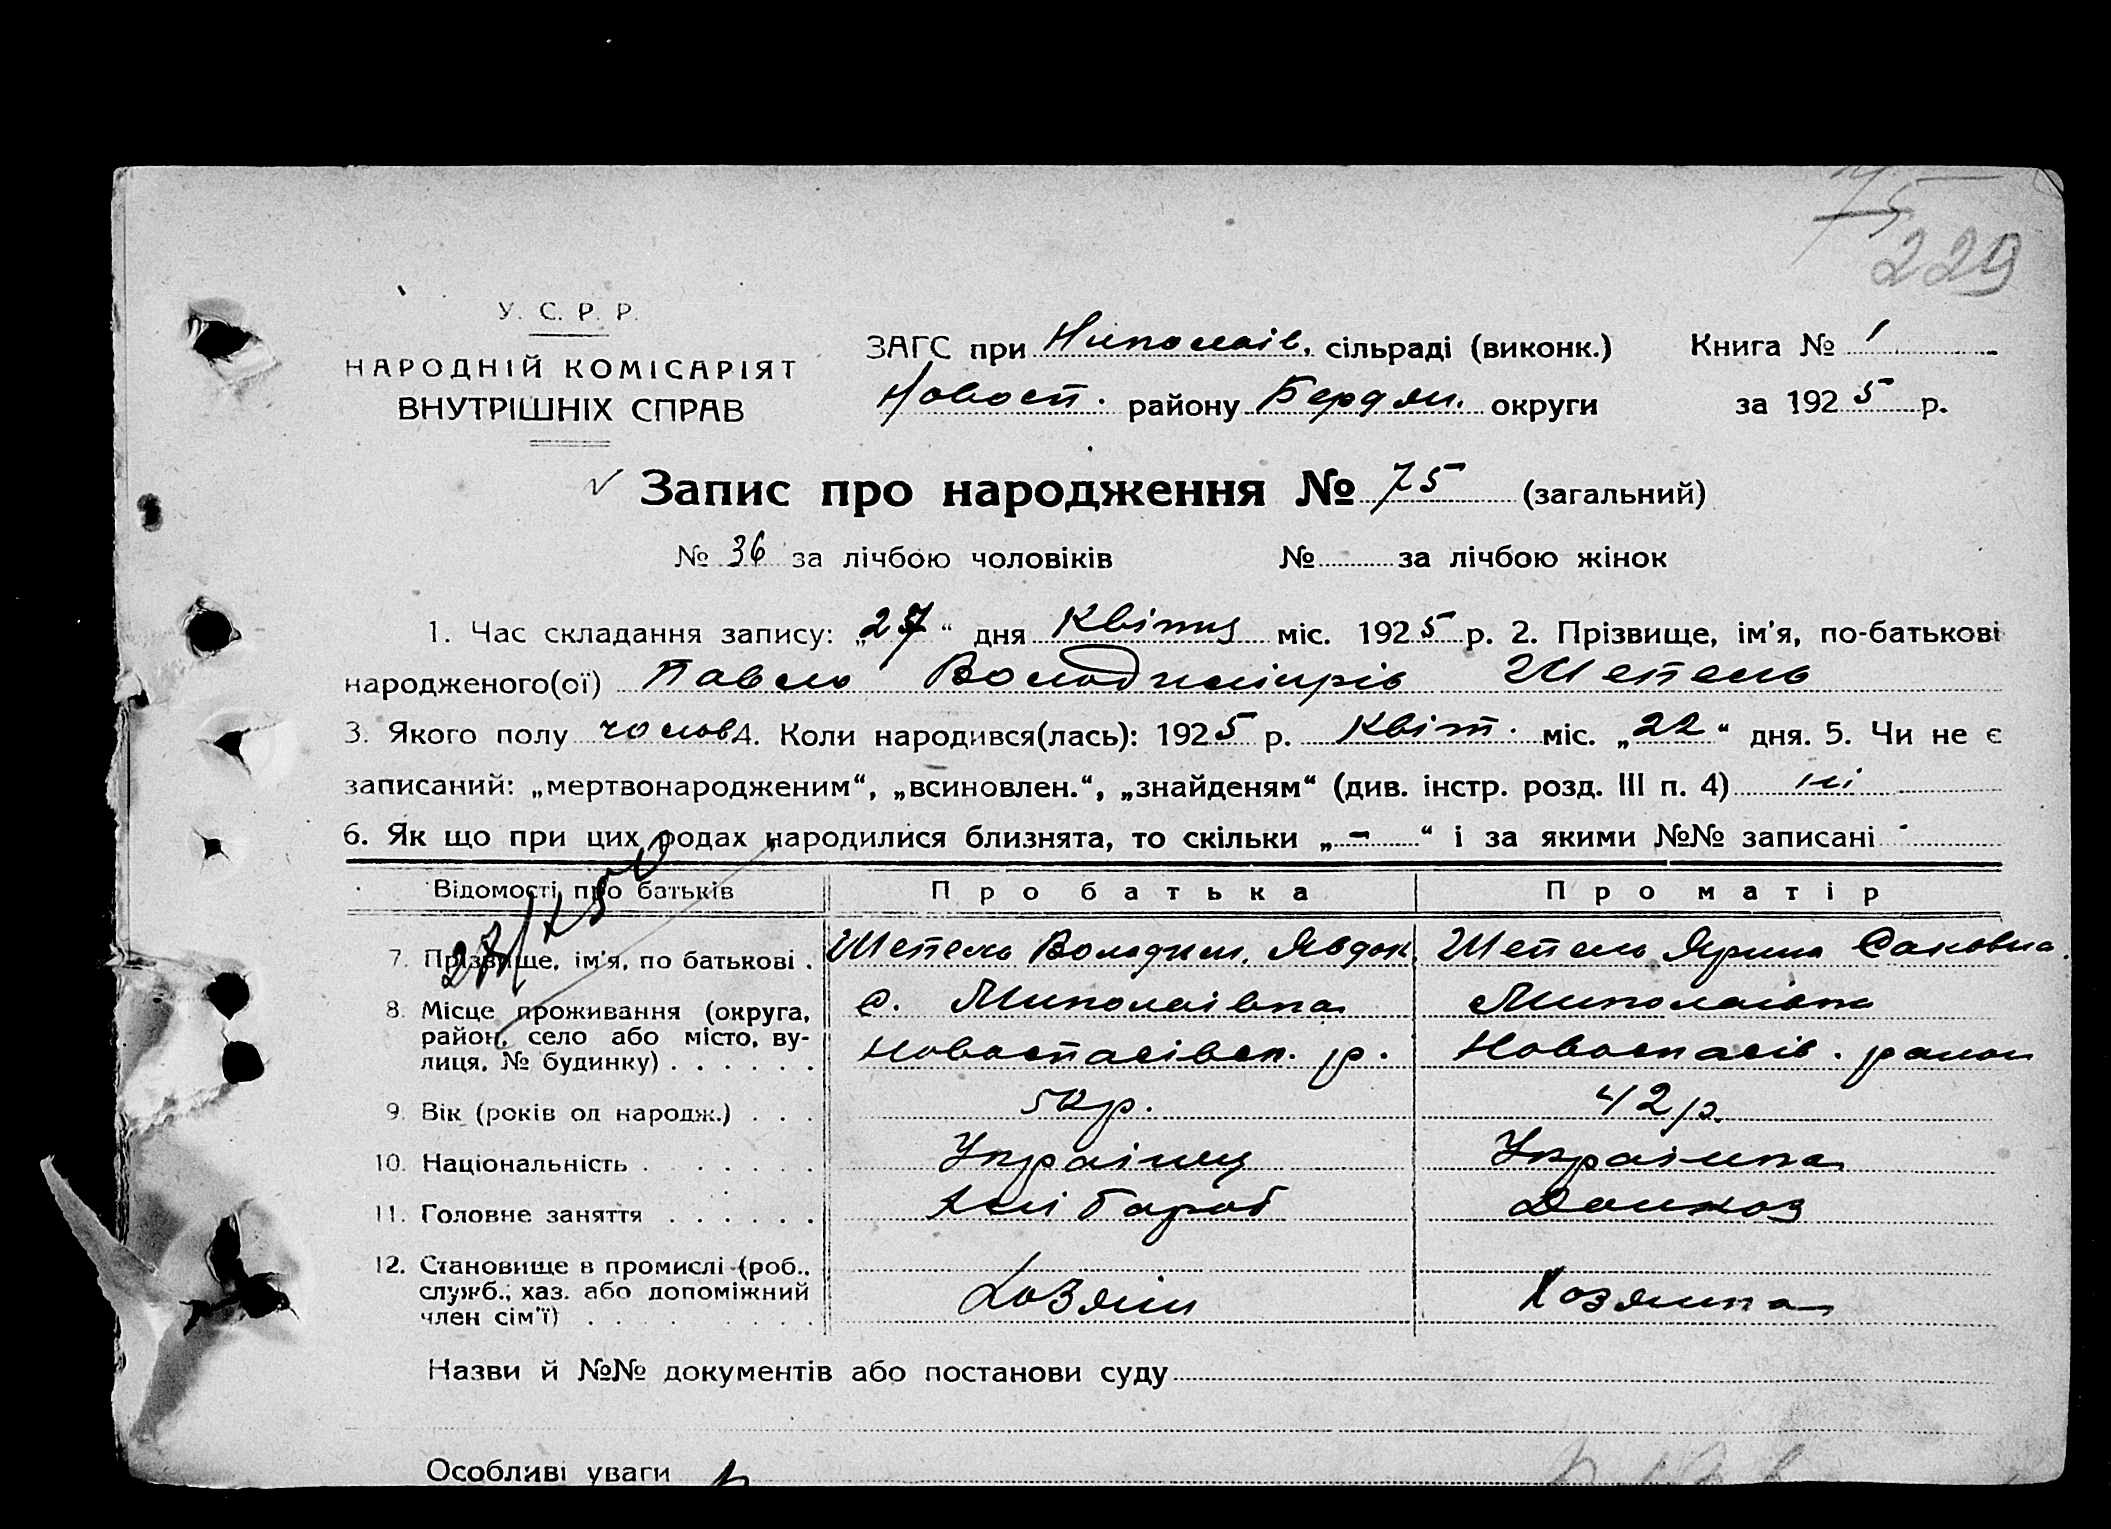 75
229
У. С. Р. Р.
НАРОДНІЙ КОМІСАРІЯТ
ВНУТРІШНІХ СПРАВ
ЗАГС при Миколаїв. сільраді (виконк.) Книга № 1
Новосп. району Бердян. округи за 1925 р.
Запис про народження № 75 (загальний)
№ 36 за лічбою чоловіків № за лічбою жінок
1. Час складання запису: „27“ дня Квітня міс. 1925 р. 2. Прізвище, ім'я, по-батькові
народженого(ої) Павло Володимирів Шепель
3. Якого полу чолов 4. Коли народився(лась): 1925 р. Квіт. міс. „22“ дня. 5. Чи не є
записаний: „мертвонародженим“, „всиновлен.“, „знайденям“ (див. інстр. розд. III п. 4) ні
6. Як що при цих родах народилися близнята, то скільки „-“ і за якими №№ записані -
Відомості про батьків Про батька Про матір
7. Прізвище, ім'я, по батькові . Шепель Володим. Явдок. Шепель Ярина Саковна
8. Місце проживання (округа, с. Миколаівка Миколаівка
район, село або місто, ву- Новоспасівск. р. Новоспасів. район
лиця, № будинку) . . . . . .
9. Вік (років од народж.) . . . 50 р. 42 р.
10. Національність . . . . . . Украінец Украінка
11. Головне заняття . . . . . . Хлібароб Домхоз
12. Становище в промислі (роб.,
служб., хаз. або допоміжний Хозяин Хозяинка
член сім'ї) . . . . . .
Назви й №№ документів або постанови суду
Особливі уваги